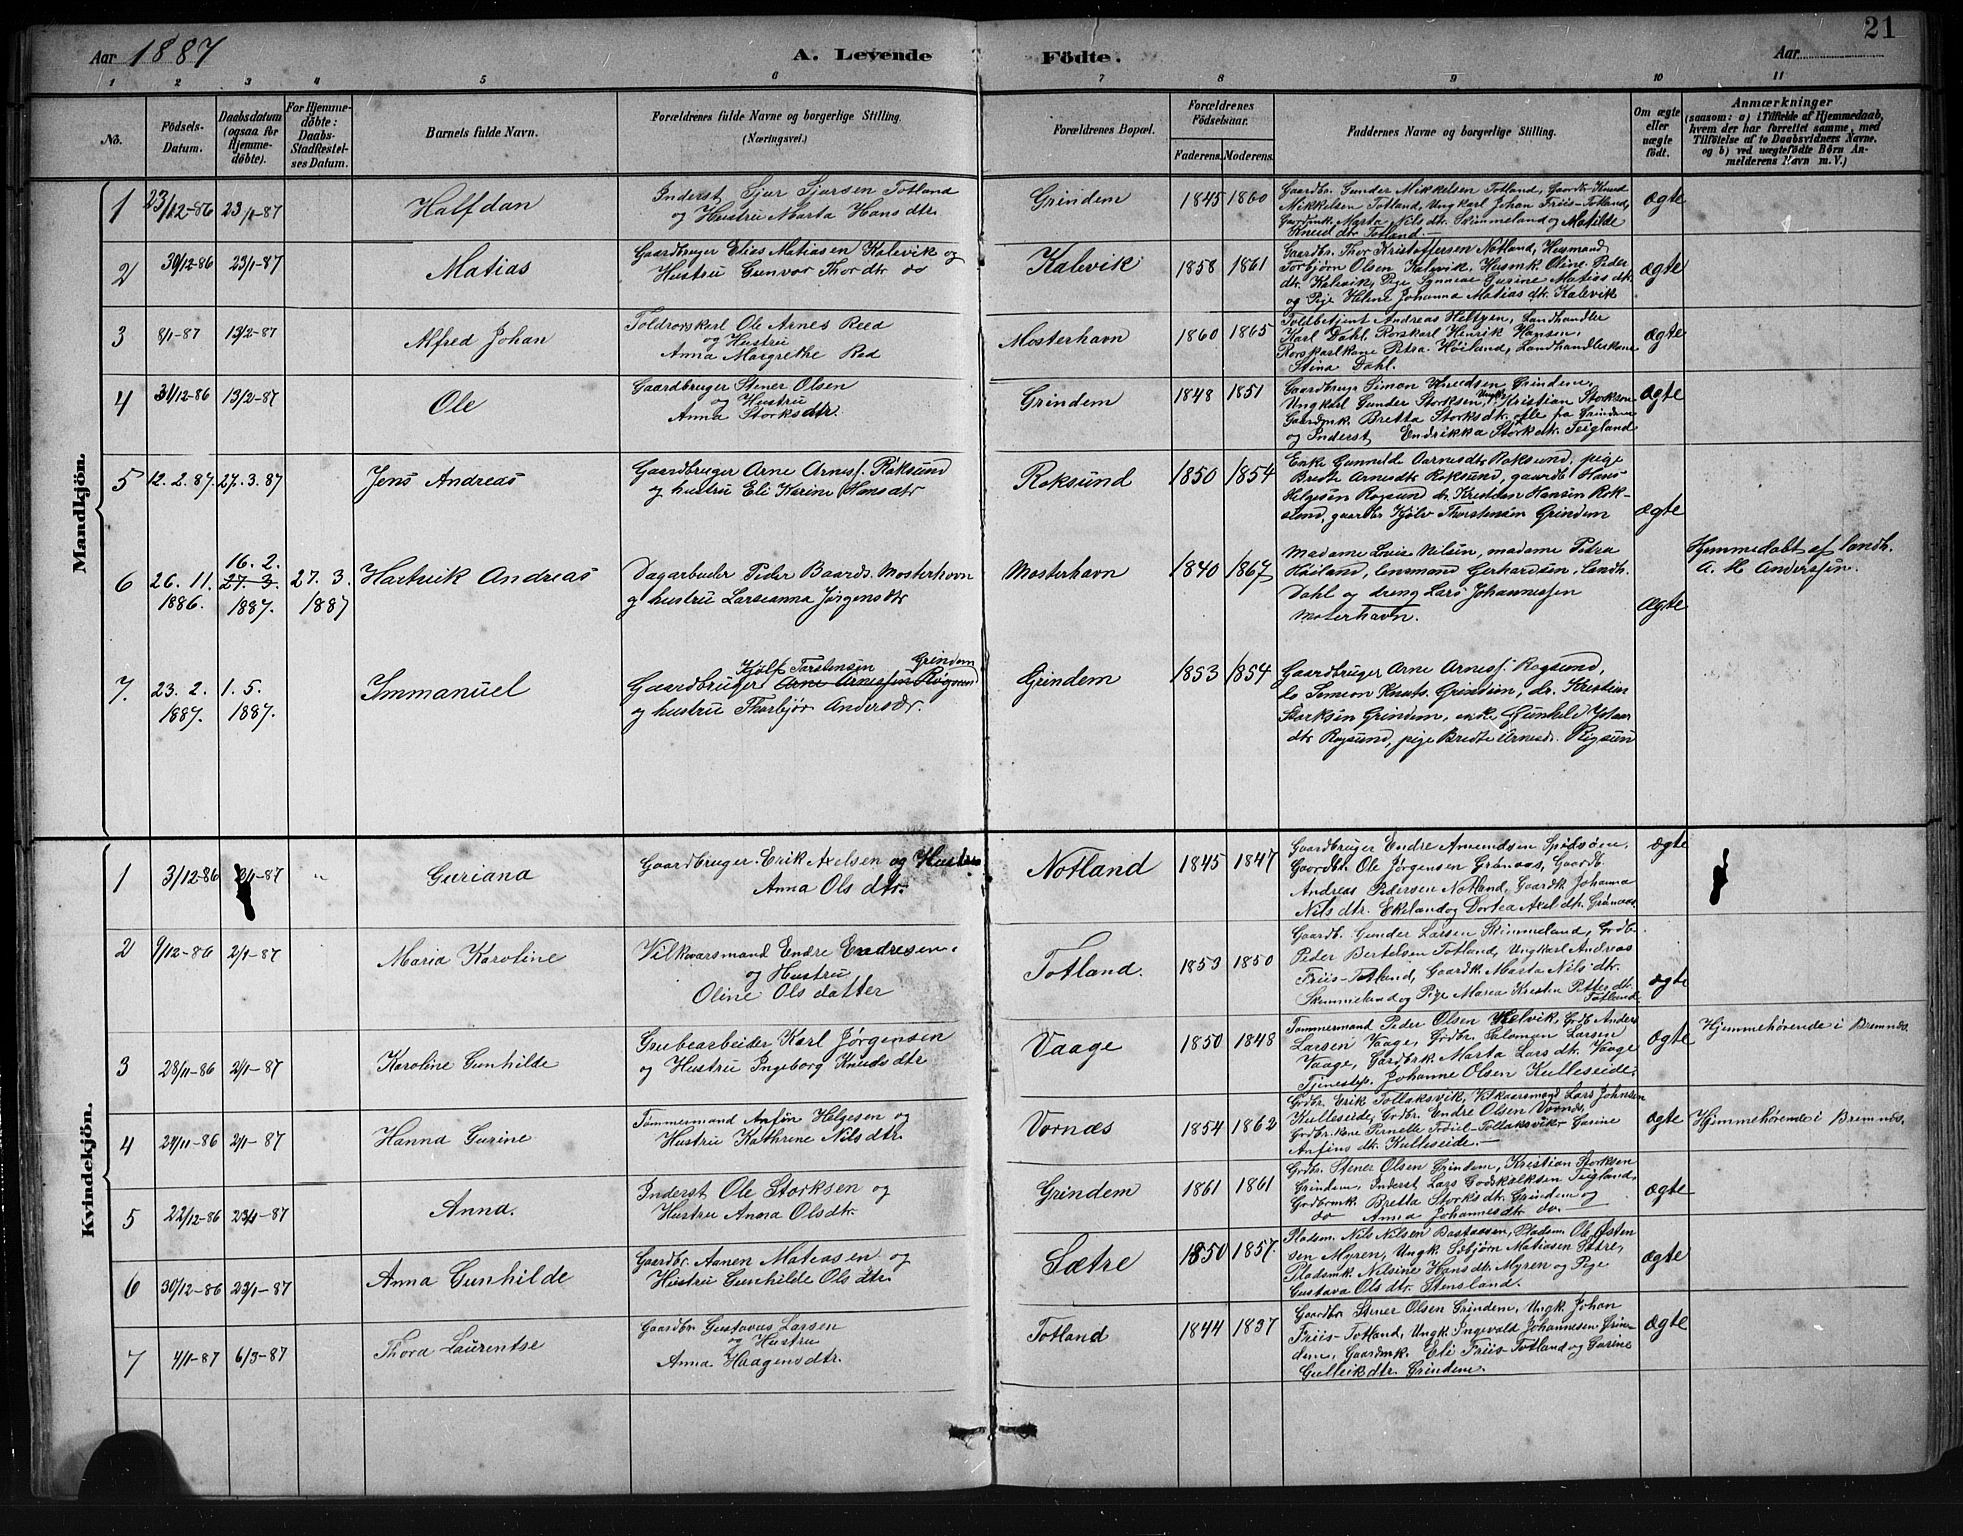 21
Aar 1887 A. Levende Fødte. Aar
1 2 3 4 5 6 7 8 9 10 11
No.
Fødsels-Datum.
Daabsdatum (ogsaa for Hjemmedöbte).
For Hjemmedöbte: Daabs-Stadfæstelses Datum.
Barnets fulde Navn.
Forældrenes fulde Navne og borgerlige Stilling. (Næringsvei.)
Forældrenes Bopæl.
Forældrenes Födselsaar.
Faderens. Moderens.
Faddernes Navne og borgerlige Stilling.
Om ægte eller uægte födt.
Anmærkninger
(saasom: a) i Tilfælde af Hjemmedaab, hvem der har forrettet samme, med Tilföielse af to Daabsvidners Navne, og b) ved uægtefödte Børn Anmelderens Navn m. V.)
Mandkjön.
1 23/12-86 23/1-87 Halfdan
Inderst Sjur Sjursen Totland
og Hustru Marta Hansdtr
Grindem 1845 1860
Gaardbr. Gunder Mikkelsen Totland, Gaardb. Knud
Mikkelsen Totland, Ungkarl Johan Friis-Totland,
Gardmk. Marta Nilsdtr. Skimmeland og Matilde
Knudsdtr Totland.
Ægte
2 30/12-86 23/1-87 Matias
Gaardbruger Elias Matiasen Kalevik og
Hustru Gunvor Thordtr do
Kalevik 1858 1861
Gaardbr. Thor Kristoffersen Notland, Husmand
Torbjørn Olsen Kalevik, Husmk. Oline Peder
dtr. Kalevik, Pige Synneve Gurine Matiasdtr.
og Pige Helene Johanna Matiasdtr. Kalevik
Ægte
3 8/1-87 13/2-87 Alfred Johan
Toldrorskarl Ole Arnes Reed
og Hustru
Anna Margrethe Red
Mosterhavn 1860 1865
Toldbetjent Andreas Heltzen, Landhandler
Karl Dahl, Rorskarl Henrik Hansen,
Rorskarlkone Petra Høiland, Landhandlerkone
Stina Dahl.
Ægte
4 31/12-86 13/2-87 Ole
Gaardbruger Stener Olsen
og Hustru
Anna Storksdtr.
Grindem 1848 1851
Gaardbrugr Simon Knudsen Grindem,
Ungkarl Gunder Storksen, Ungk. Kristian Storksen
Gaardmk. Bretta Storksdtr. alle fra Grindem
og Inderst Endrikka Storksdtr. Teigland
Ægte
5 12. 2. 87. 27. 3. 87 Jens Andreas
Gaardbruger Arne Arness. Røksund
og hustru Eli Karine Hansdtr
Roksund 1850 1854
Enke Gunnilde Aarnesdtr Roksund, pige
Bredte Arnesdtr Roksund, gaardb Hans
Helgesen Rogsund, dr. Kristian Hansen Rok-
sund, gaardbr Kjølv Thorstensen Grindem
Ægte
6 26. 11. 1886. 16. 2. 27. 3. 1887. 27. 3. 1887 Hartvik Andreas
Dagarbeider Peder Baards. Mosterhavn
og hustru Larsianna Jørgensdtr
Mosterhavn 1840 1867
Madame Lovise Nilsen, madame Petra
Høiland, lensmand Gerhardsen, Landh.
Dahl og dreng Lars Johannessen
Mosterhavn.
Ægte
Hjemmedøbt af landh.
A. H Anderssen.
7. 23. 2. 1887. 1. 5. 1887. Immanuel
Kjølf Torstensen Grindem
Gaardbruger Arne Arnessen Rogsund
og hustru Thorbjør Andersdtr.
Grindem 1853 1854
Gaardbruger Arne Arness. Rogsund,
do Simeon Knuts. Grindem, dr. Kristian
Storksen Grindem, enke Gunhild
dtr Rogsund, pige Bredte Arnesd. Rogsun
Kvindekjön.
1 3/12-86 2/1-87 Guriana
Gaardbruger Erik Axelsen og Hustru
Anna Olsdtr.
Notland 1845 1847
Gaardbruger Endre Amundsen
Gaardbr. Ole Jørgensen Grønaas, Gaardb.
Andreas Pedersen Notland, Gaardk. Johanna
Nilsdtr. Ekeland og Dortea Axeldtr. Grønaas
Ægte
2 9/12-86 2/1-87 Maria Karoline
Vilkaarsmand Endre Endresen
og Hustru
Oline Olsdatter
Totland. 1853 1850
Gaardb. Gunder Larsen Skimmeland, Grdb
Peder Bertelsen Totland, Ungkarl Andreas
Friis-Totland, Gaardk. Marta Nilsdtr.
Skimmeland og Pige Maria Kristin Petterdtr.
Totland
Ægte
3 28/11-86 2/1-87 Karoline Gunhilde
Grubearbeider Karl Jørgensen
og Hustru Ingeborg Knudsdtr
Vaage 1850 1848
Tømmermand Peder Olsen Kalvik, Grdb Anders
Larsen Vaage, Grdbr. Salomon Larsen
Vaage, Gardbrk Marta Larsdtr. Vaage
Tjenestep. Johanne Olsen Kulleseide.
Ægte
Hjemmehørende i Bremnes.
4 24/11-86 2/1-87 Hanna Gurine
Tømmermand Anfin Helgesen og
Hustru Kathrine Nilsdtr.
Vornæs 1854 1862
Grdbr. Erik Tollaksvik, Vilkaarsmand Lars Johnsen
Kulleseide, Grdbr. Endre Olsen Vornæs,
Grdbr.kone Pernelle Tollaksvik Gurine
Anfinsdtr. Kulleseide.
Ægte
Hjemmehørende i Bremnes.
5 22/12-86 23/1-87 Anna.
Inderst Ole Storksen og
Hustru Anna Olsdtr.
Grindem 1861 1861
Grdbr. Stener Olsen Grindem, Kristian Storksen
Grindem, Inderst Lars Godskalksen Teigland,
Grdbrmk. Bretta Storksdtr. Grindem og
do Anna Johannesdtr. do.
Ægte
6 30/12-86 23/1-87 Anna Gunhilde
Gaardbr. Aanen Matiasen og
Hustru Gunhilde Olsdtr.
Sætre 1850 1857.
Pladsm. Nils Nilsen Pladsm. Ole Østen
sen Myren, Ungk. Esbjørn Matiasen Sætre,
Pladsmk. Nilsine Hansdtr. Myren og Pige
Gustava Olsdtr. Stensland.
Ægte
7 4/1-87 6/3-87 Thora Laurentse
Gaardbr Gustavus Larsen
og Hustru
Anna Haagensdtr.
Totland 1844 1837
Gaardbr Stener Olsen Grindem, Ungk. Johan
Friis-Totland, Ungk. Ingevald Johannesen Grin-
dem, Gaardmk. Eli Friis-Totland og Gurine
Gulleikdtr. Grindem.
Ægte